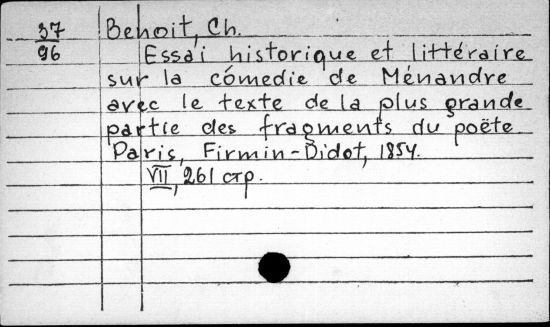 37 Behoit, Ch.
96 Essai historique et littéraire
sur la cómedie de Ménandre
avec le texte de la plus grande
partie des fragments du poëte
Paris, Firmin-Didot, 1854.
VII, 261 стр.